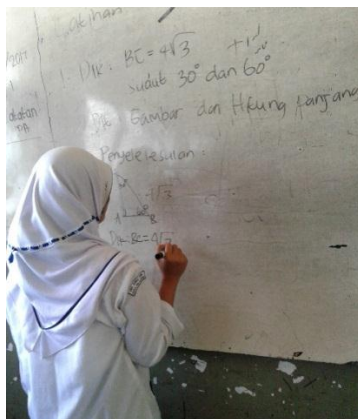 Latihan
/2017
1. Dik : BC = 4√3
sudut 30° dan 60°
Dit : Gambar dan Hitung Panjang
Penyelesaian :
4√3
A 60° B
Dik BC = 4√3